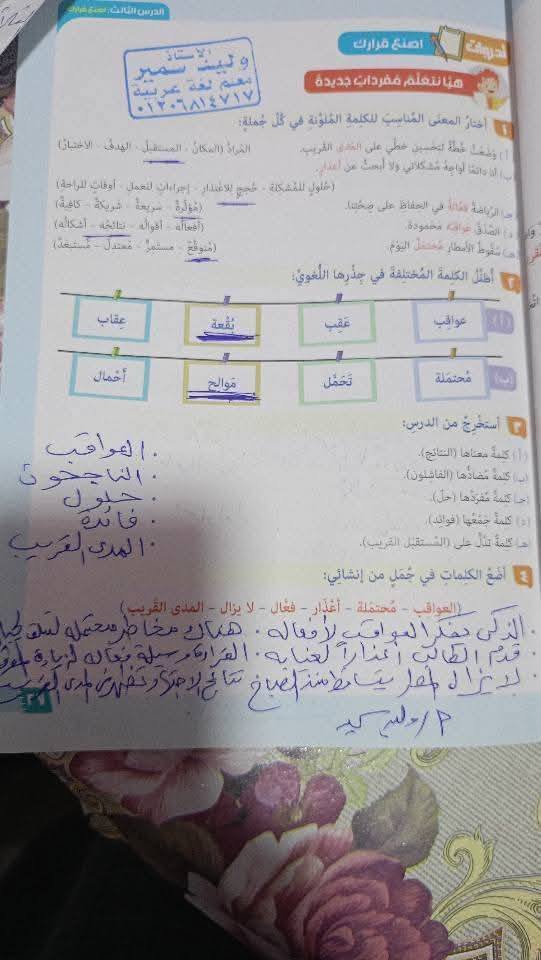 الدرس الثالث: اصنع قرارك
اصنع قرارك
هيا نتعلم مفردات جديدة
الأستاذ
وليد سمير
معلم لغة عربية
٠١٢٠٦٨١٤٧١٧
١ أختار المعنى المناسب للكلمة الملونة في كل جملة:
(أ) وضعت خطة لتحسين خطي على المدى القريب. المراد (المكان - المستقبل - الهدف - الاختبار)
(ب) أنا دائما أواجه مشكلاتي ولا أبحث عن أعذار.
(حلول للمشكلة - حجج للاعتذار - إجراءات للعمل - أوقات للراحة)
(جـ) الرياضة فعالة في الحفاظ على صحتنا. (مؤثرة - سريعة - شريكة - كافية)
(د) الصدق عواقبه محمودة. (أفعاله - أقواله - نتائجه - أشكاله)
(هـ) سقوط الأمطار محتمل اليوم. (متوقع - مستمر - معتدل - مستبعد)
٢ أظلل الكلمة المختلفة في جذرها اللغوي:
(أ) عواقب عقب بقعة عقاب
(ب) محتملة تحمل موالح أحمال
٣ أستخرج من الدرس:
(أ) كلمة معناها (النتائج). العواقب
(ب) كلمة مضادها (الفاشلون). الناجحون
(جـ) كلمة مفردها (حل). حلول
(د) كلمة جمعها (فوائد). فائدة
(هـ) كلمة تدل على (المستقبل القريب). المدى القريب
٤ أضع الكلمات في جمل من إنشائي:
(العواقب - محتملة - أعذار - فعال - لا يزال - المدى القريب)
الذكي يفكر العواقب لأفعاله. هناك مخاطر محتملة
قدم الطالب أعذارا لغيابه. القراءة وسيلة فعالة لزيادة
لا يزال المطر يتساقط منذ الصباح نتائج الاجتهاد تظهر على المدى القريب
أ/ وليد سمير